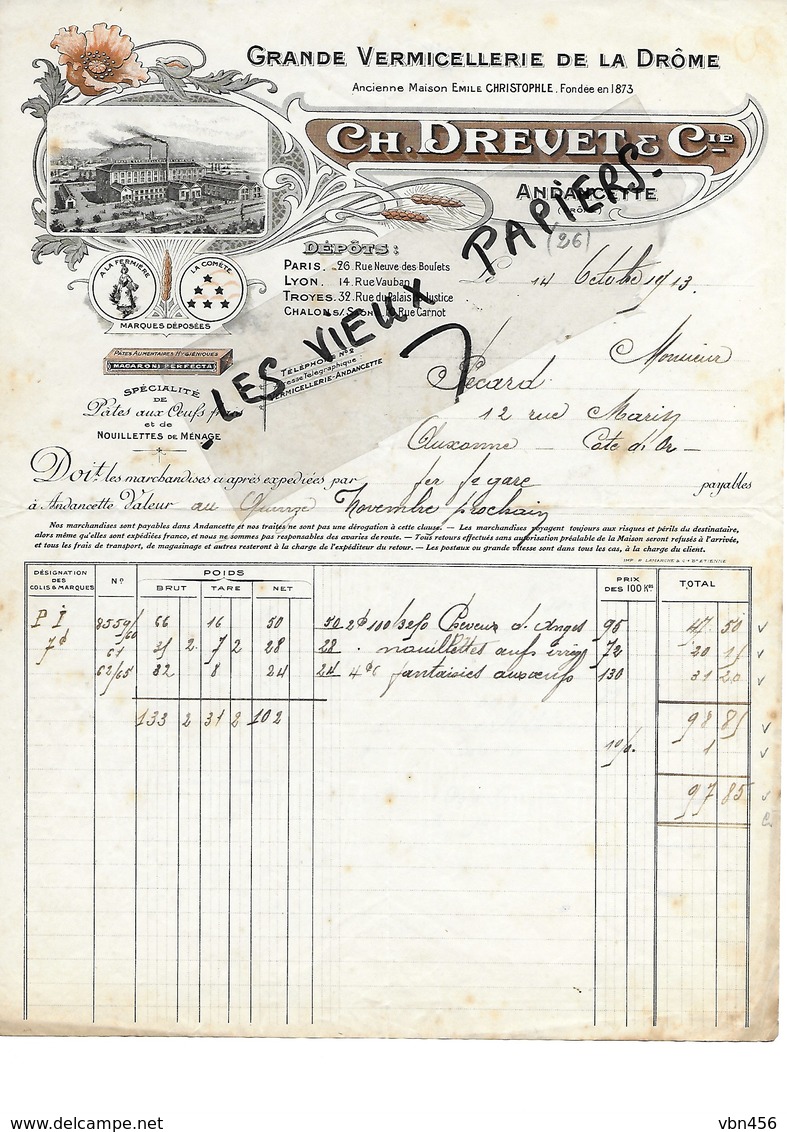 GRANDE VERMICELLERIE DE LA DRÔME
Ancienne Maison EMILE CHRISTOPHLE. Fondée en 1873
CH. DREVET & CIE
ANDANCETTE
(DRÔME)
(26)
LES VIEUX PAPIERS.
A LA FERMIÈRE
LA COMÈTE
MARQUES DÉPOSÉES
DÉPÔTS:
PARIS. 26. Rue Neuve des Boulets
LYON. 14 Rue Vauban
TROYES. 32. Rue du Palais de Justice
CHALON S/ SAÔNE Rue Carnot
Le 14 Octobre 1913.
PÂTES ALIMENTAIRES HYGIÉNIQUES
MACARONI PERFECTA
TÉLÉPHONE Nº 2
Adresse Télégraphique
VERMICELLERIE-ANDANCETTE
SPÉCIALITÉ
DE
Pâtes aux Œufs frais
et de
NOUILLETTES DE MÉNAGE
Monsieur
Pécard
12 rue Marin
Auxonne - Cote d'Or -
Doit les marchandises ci après expédiées par fer gare payables
à Andancette Valeur au Quinze Novembre prochain
Nos marchandises sont payables dans Andancette et nos traites ne sont pas une dérogation à cette clause. — Les marchandises voyagent toujours aux risques et périls du destinataire,
alors même qu'elles sont expédiées franco, et nous ne sommes pas responsables des avaries de route. — Tous retours effectués sans autorisation préalable de la Maison seront refusés à l'arrivée,
et tous les frais de transport, de magasinage et autres resteront à la charge de l'expéditeur du retour. — Les postaux ou grande vitesse sont dans tous les cas, à la charge du client.
DÉSIGNATION DES COLIS & MARQUES Nº POIDS BRUT TARE NET PRIX DES 100 KOS TOTAL
P I 8559/60 66 16 50 50 100/32/0 Cheveux d'Anges 95 47 50
61 35 2 7 2 28 28 nouillettes œufs 72 20 15
62/65 32 8 24 24 fantaisies aux œufs 130 31 20
133 2 31 2 102
98 85
1 % 1
97 85
vbn456